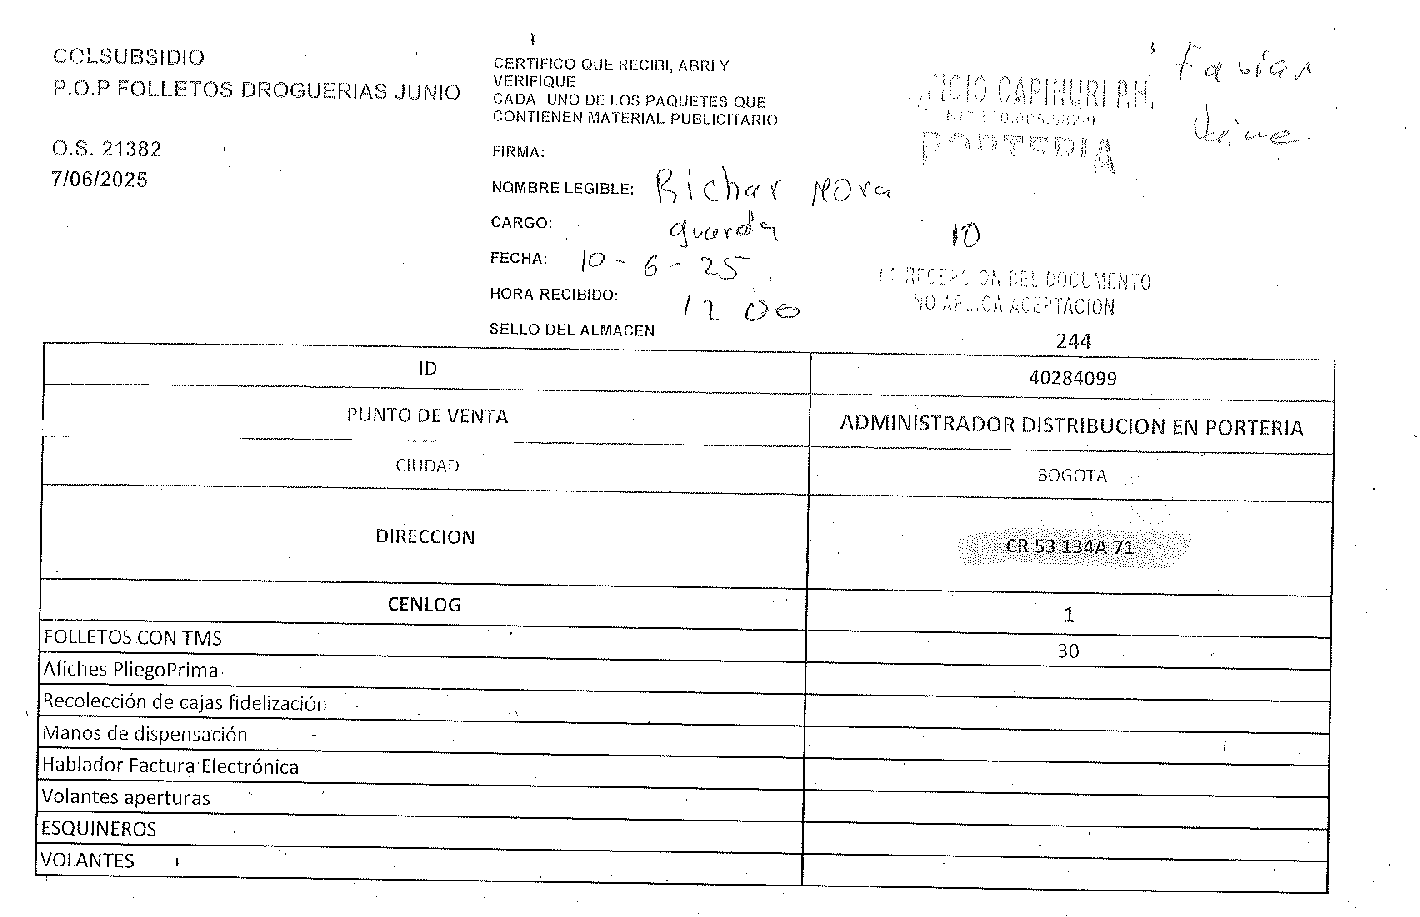 COLSUBSIDIO
P.O.P FOLLETOS DROGUERIAS JUNIO
O.S. 21382
7/06/2025
CERTIFICO QUE RECIBI, ABRI Y
VERIFIQUE
CADA UNO DE LOS PAQUETES QUE
CONTIENEN MATERIAL PUBLICITARIO
FIRMA:
NOMBRE LEGIBLE: Richar Mora
CARGO: guarda
FECHA: 10-6-25
HORA RECIBIDO: 12 00
SELLO DEL ALMACEN
Favian
CAPIHURI P.H.
PORTERIA
10
LA RECEPCION DEL DOCUMENTO
NO APLICA ACEPTACION
244
ID 40284099
PUNTO DE VENTA ADMINISTRADOR DISTRIBUCION EN PORTERIA
CIUDAD BOGOTA
DIRECCION CR 53 134A 71
CENLOG 1
FOLLETOS CON TMS 30
Afiches PliegoPrima
Recolección de cajas fidelización
Manos de dispensación
Hablador Factura Electrónica
Volantes aperturas
ESQUINEROS
VOLANTES